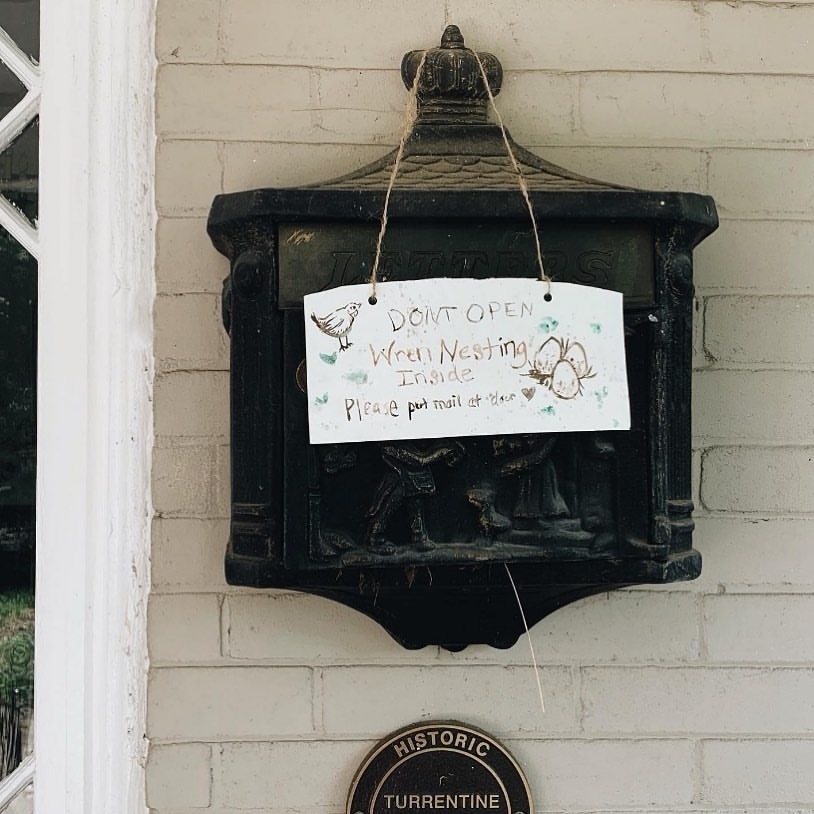 LETTERS
DONT OPEN
Wren Nesting
Inside
Please put mail at door
HISTORIC
TURRENTINE